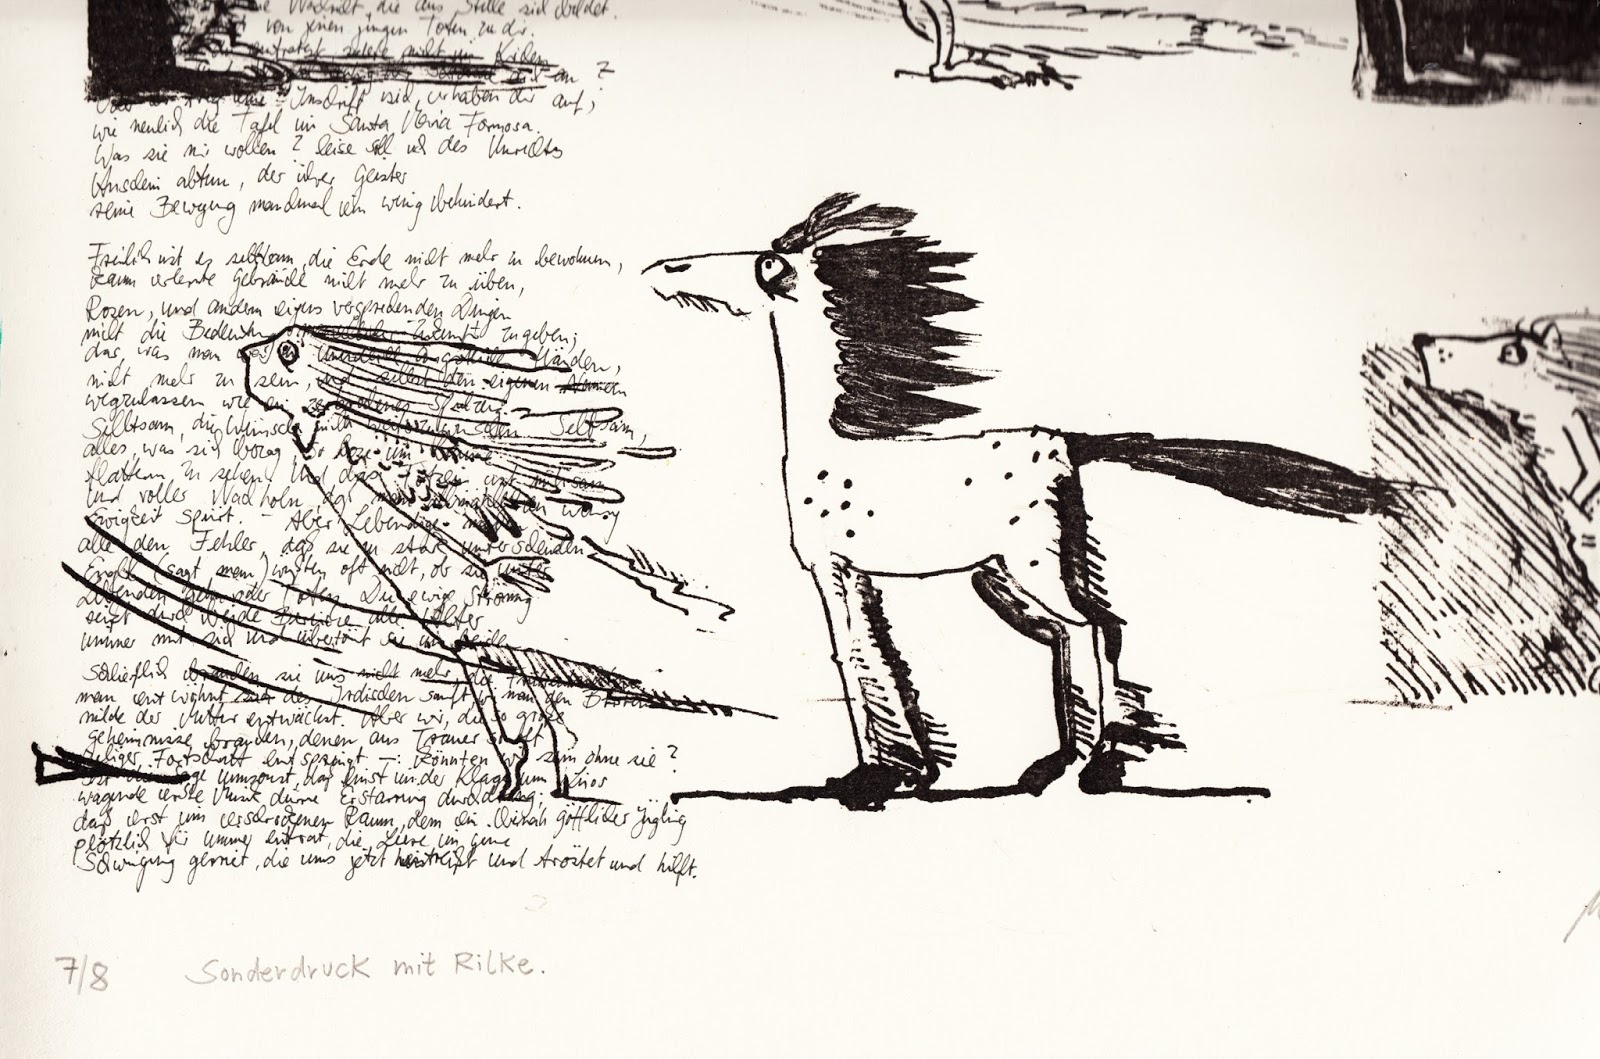 die aus Stille sich bildet.
von jenen jungen Toten zu dir.
Inschrift sich erhaben dir auf,
wie neulich die Tafel in Santa Maria Formosa.
Was sie mir wollen? leise soll ich des Unrechts
Anschein abtun, der ihrer Geister
reine Bewegung manchmal ein wenig behindert.
Freilich ist es seltsam, die Erde nicht mehr zu bewohnen,
kaum erlernte Gebräuche nicht mehr zu üben,
Rosen, und andern eigens versprechenden Dingen
nicht die Bedeutung Zukunft zu geben;
das, was man war Händen,
nicht mehr zu sein, und selbst den eigenen Namen
wegzulassen wie ein zerbrochenes Spielzeug.
Seltsam, die Wünsche nicht weiterzuwünschen. Seltsam,
alles, was sich bezog, so lose im Raume
flattern zu sehen. Und das Totsein ist mühsam
und voller Nachholn, daß man allmählich ein wenig
Ewigkeit spürt. – Aber Lebendige machen
alle den Fehler, daß sie zu stark unterscheiden.
Engel (sagt man) wüßten oft nicht, ob sie unter
Lebenden gehn oder Toten. Die ewige Strömung
reißt durch beide Bereiche alle Alter
immer mit sich und übertönt sie in beide
Schließlich brauchen sie uns nicht mehr, die
man entwöhnt sich des Irdischen sanft, wie man den Brüsten
milde der Mutter entwächst. Aber wir, die so große
Geheimnisse brauchen, denen aus Trauer so oft
seliger Fortschritt entspringt –: könnten wir sein ohne sie?
Ist die Sage umsonst, daß einst in der Klage um Linos
wagende erste Musik dürre Erstarrung durchdrang;
daß erst im erschrockenen Raum, dem ein beinah göttlicher Jüngling
plötzlich für immer entrat, die Leere in jene
Schwingung geriet, die uns jetzt hinreißt und tröstet und hilft.
7/8 Sonderdruck mit Rilke.